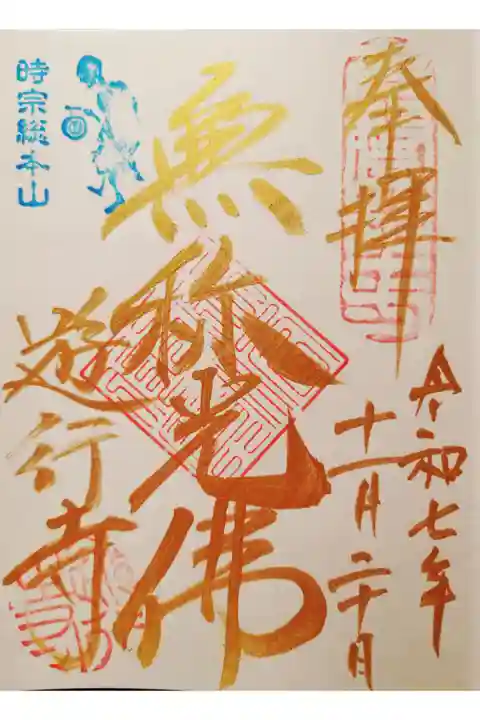 奉拝
令和七年
十一月二十日
無称光佛
遊行寺
時宗総本山